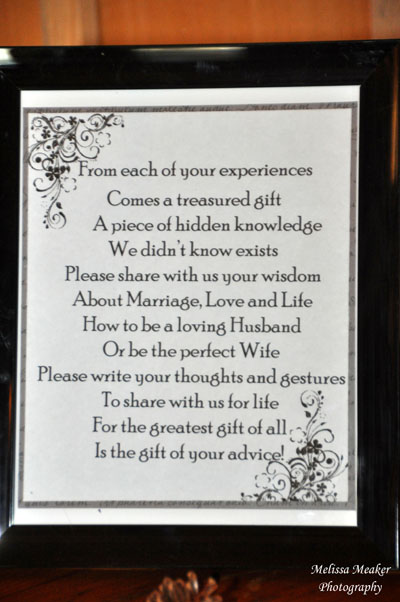 From each of your experiences
Comes a treasured gift
A piece of hidden knowledge
We didn't know exists
Please share with us your wisdom
About Marriage, Love and Life
How to be a loving Husband
Or be the perfect Wife
Please write your thoughts and gestures
To share with us for life
For the greatest gift of all
Is the gift of your advice!
Melissa Meaker
Photography